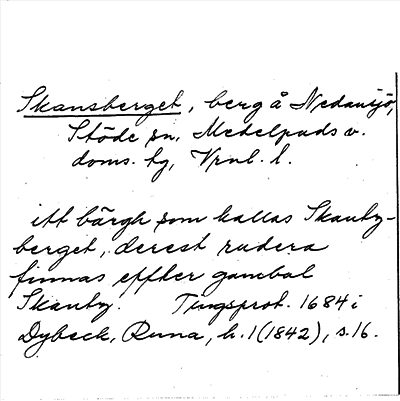 Skansberget, berg å Nedansjö,
Stöde sn, Medelpads v.
doms. tg, Vrnl. l.
itt bärgh som kallas Skantz-
berget, derest rudera
finnas effter gambal
Skantz. Tingsprot. 1684 i
Dybeck, Runa, h. 1 (1842), s. 16.